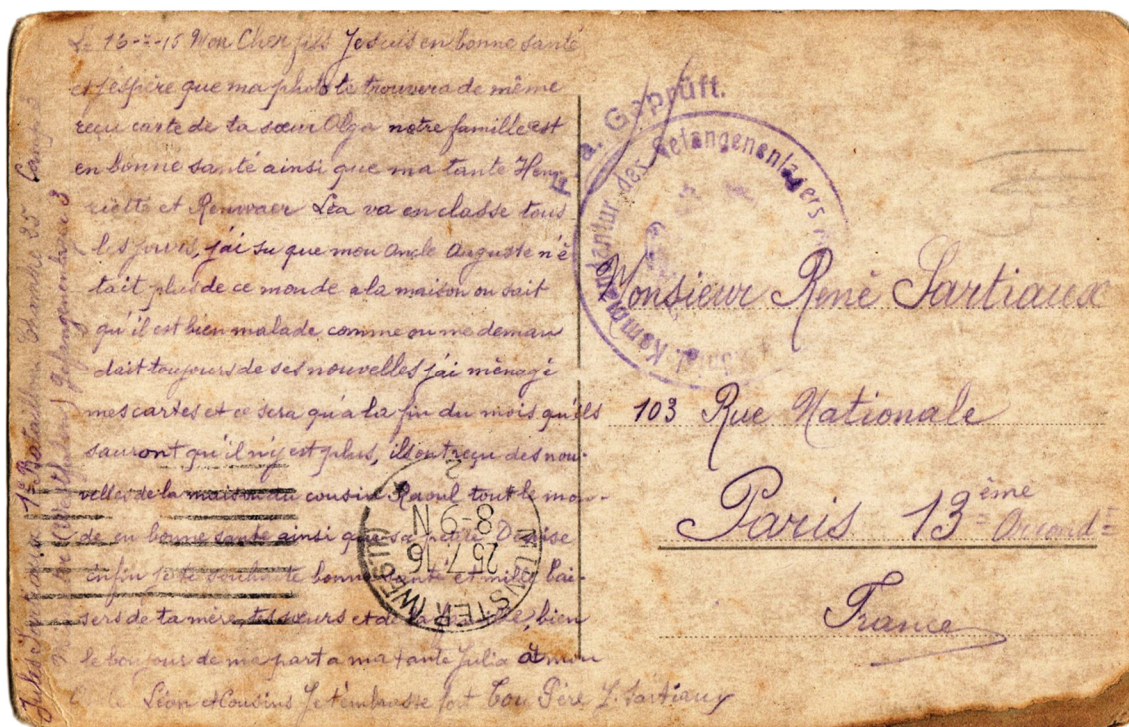 Mon Cher fils Je suis en bonne santé
et j'éspère que ma photo te trouvera de même
reçu carte de ta sœur Olga notre famille est
en bonne santé ainsi que ma tante Hen-
riette et Renwaer Léa va en classe tous
les jours, j'ai su que mon oncle Auguste n'é
tait plus de ce monde a la maison on sait
qu'il est bien malade comme on me deman
dait toujours de ses nouvelles j'ai ménagé
mes cartes et ce sera qu'a la fin du mois qu'ils
sauront qu'il n'y est plus, ils ont reçu des nou-
velles de la maison du cousin Raoul tout le mon-
de en bonne santé ainsi que sa Denise
enfin je te souhaite bonne santé et mille bai-
sers de ta mère, tes sœurs et de bien
le bonjour de ma part a ma tante Julia et mon
Léon et Cousins Je t'embrasse fort Ton Père J. Sartiaux
Jules 1e Bataillon 25 Camp 3
Gefangenenlager 3
F. a. Geprüft.
Kommandantur des Gefangenenlagers
MÜNSTER (WESTF)
25.7.16
8-9 N
2
Monsieur René Sartiaux
103 Rue Nationale
Paris 13ème Arrondt
France